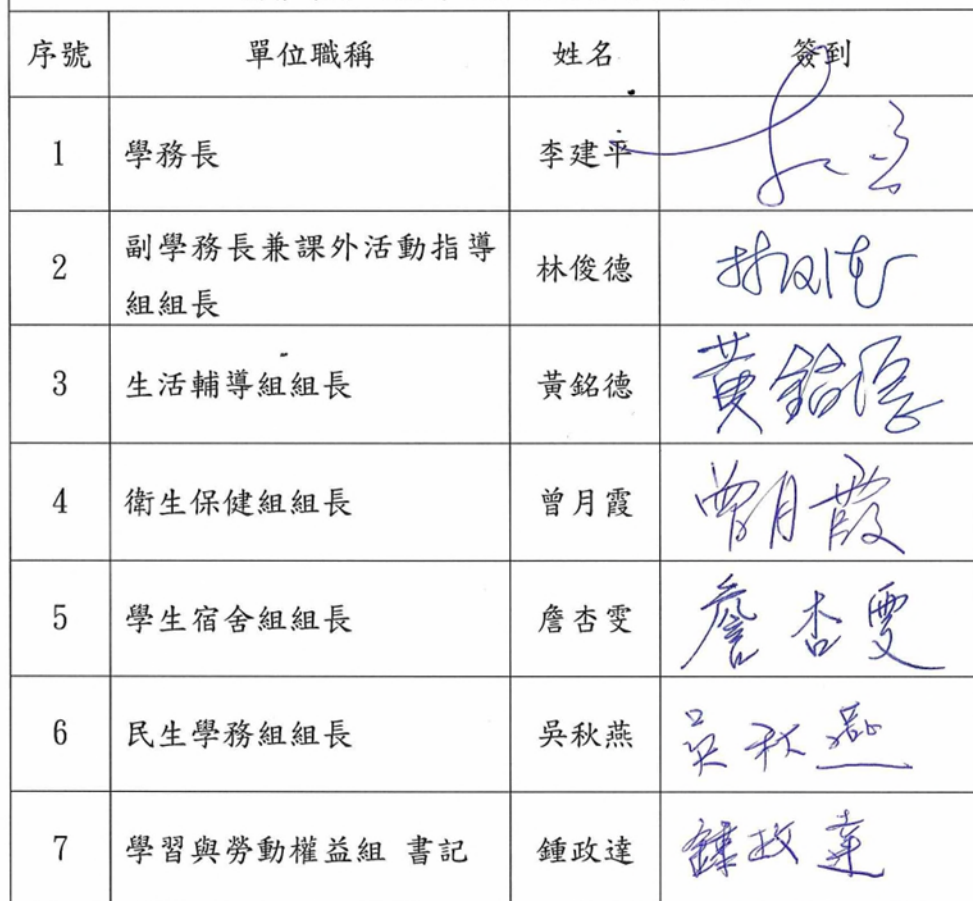 序號 單位職稱 姓名 簽到
1 學務長 李建平
副學務長兼課外活動指導
2 林俊德 林俊德
組組長
3 生活輔導組組長 黃銘德 黃銘德
4 衛生保健組組長 曾月霞 曾月霞
5 學生宿舍組組長 詹杏雯 詹杏雯
6 民生學務組組長 吳秋燕 吳秋燕
7 學習與勞動權益組 書記 鍾政達 鍾政達